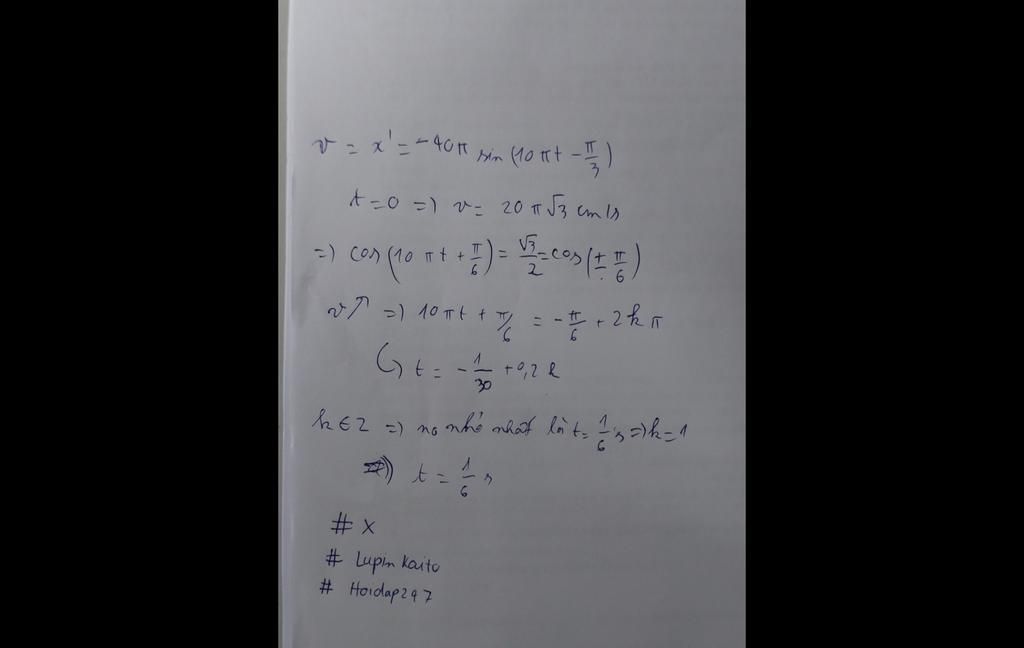 v = x' = -40π sin(10πt - π/3)
t=0 => v= 20π√3 cm/s
=> cos(10πt + π/6) = √3/2 = cos(± π/6)
v↗ => 10πt + π/6 = -π/6 + 2kπ
↪ t = -1/30 + 0,2k
k∈Z => no nhỏ nhất là t= 1/6 s => k=1
=> t = 1/6 s
# X
# Lupin Kaito
# Hoidap247